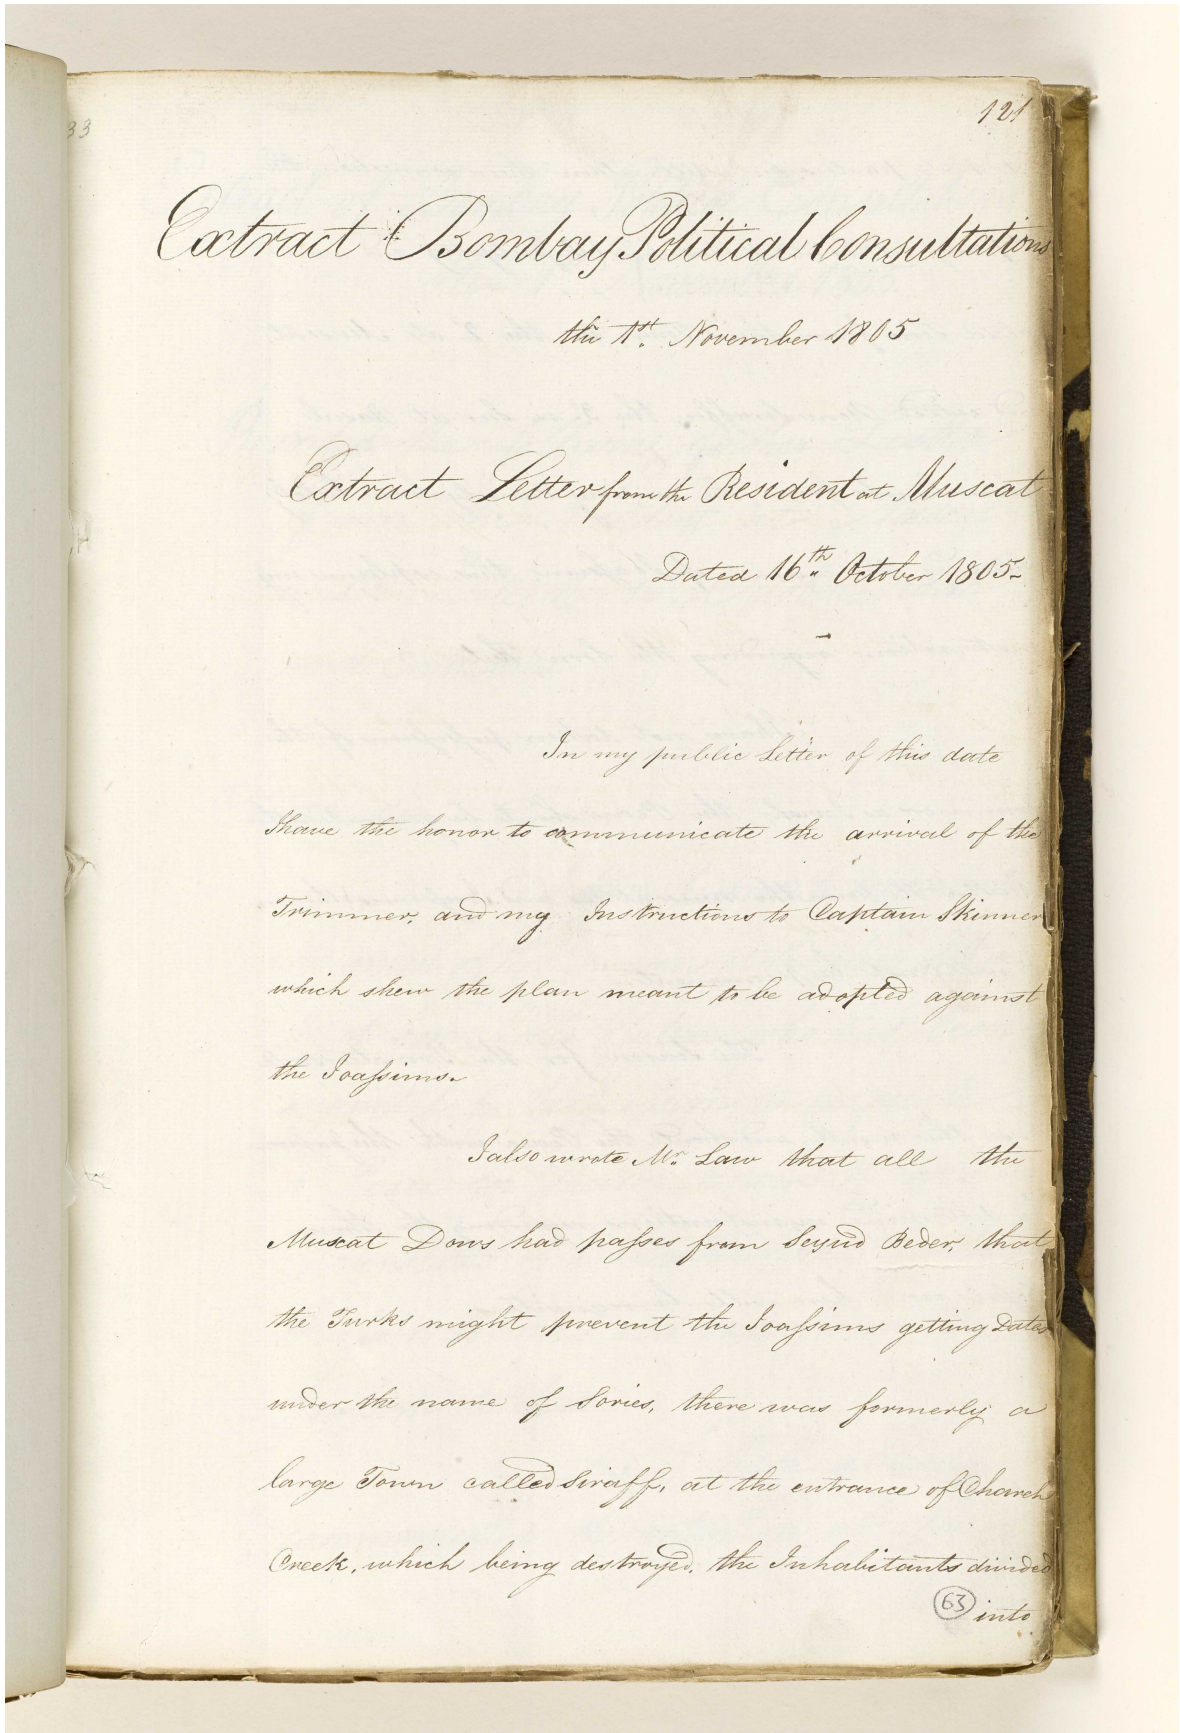 33
121
Extract Bombay Political Consultations
the 1st. November 1805
Extract Letter from the Resident at Muscat
Dated 16th October 1805-
In my public Letter of this date
I have the honor to communicate the arrival of the
Trimmer, and my Instructions to Captain Skinner
which shew the plan meant to be adopted against
the Joaſsims.
I also wrote Mr. Law that all the
Muscat Dows had paſses from Seyud Beder, that
the Turks might prevent the Joaſsims getting Dates
under the name of Sories, there was formerly a
large Town called Siraff, at the entrance of Charek
Creek, which being destroyed, the Inhabitants divided
63
into